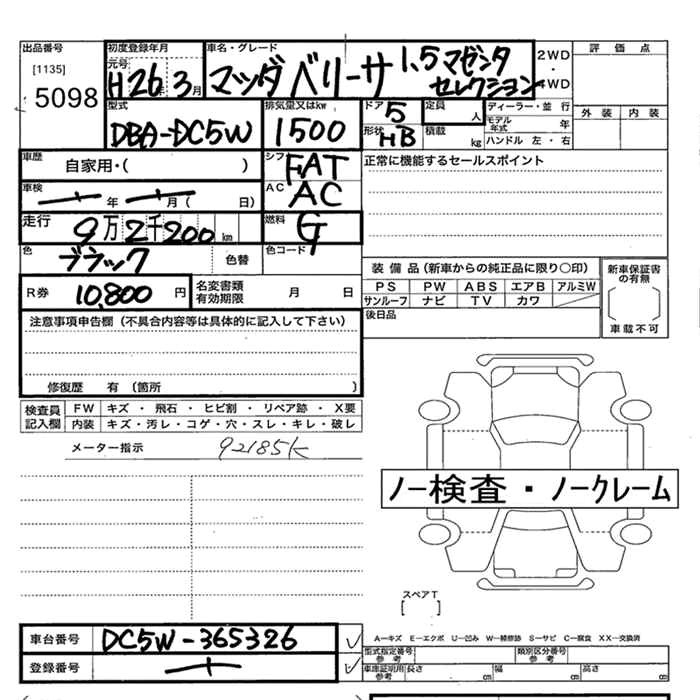 出品番号 初度登録年月 車名・グレード 評価点
[1135] 5098 元号 H26年 3月 マツダ ベリーサ 1.5 マゼンタ セレクション 2WD・4WD
型式 排気量又はkw ドア 5 定員 人 ディーラー・並行 外装 内装
DBA-DC5W 1500 形状 HB 積載 kg モデル年式 年
ハンドル 左・右
車歴 自家用・( ) シフト FAT 正常に機能するセールスポイント
車検 年 月( 日) AC AC
走行 9万2千200km 燃料 G
色 ブラック 色替 色コード
装備品(新車からの純正品に限り〇印) 新車保証書の有無
PS PW ABS エアB アルミW
サンルーフ ナビ TV カワ
[ ] 車載不可
R券 10,800円 名変書類有効期限 月 日 後日品
注意事項申告欄(不具合内容等は具体的に記入して下さい)
修復歴 有(箇所 )
検査員記入欄 FW キズ・飛石・ヒビ割・リペア跡・X要
内装 キズ・汚レ・コゲ・穴・スレ・キレ・破レ
メーター指示 92185K
ノー検査・ノークレーム
スペアT
[ ]
車台番号 DC5W-365326
A―キズ E―エクボ U―凹み W―補修跡 S―サビ C―腐食 XX―交換済
型式指定番号 参考 類別区分番号 参考
登録番号
車庫証明用 参考 長さ cm 幅 cm 高さ cm